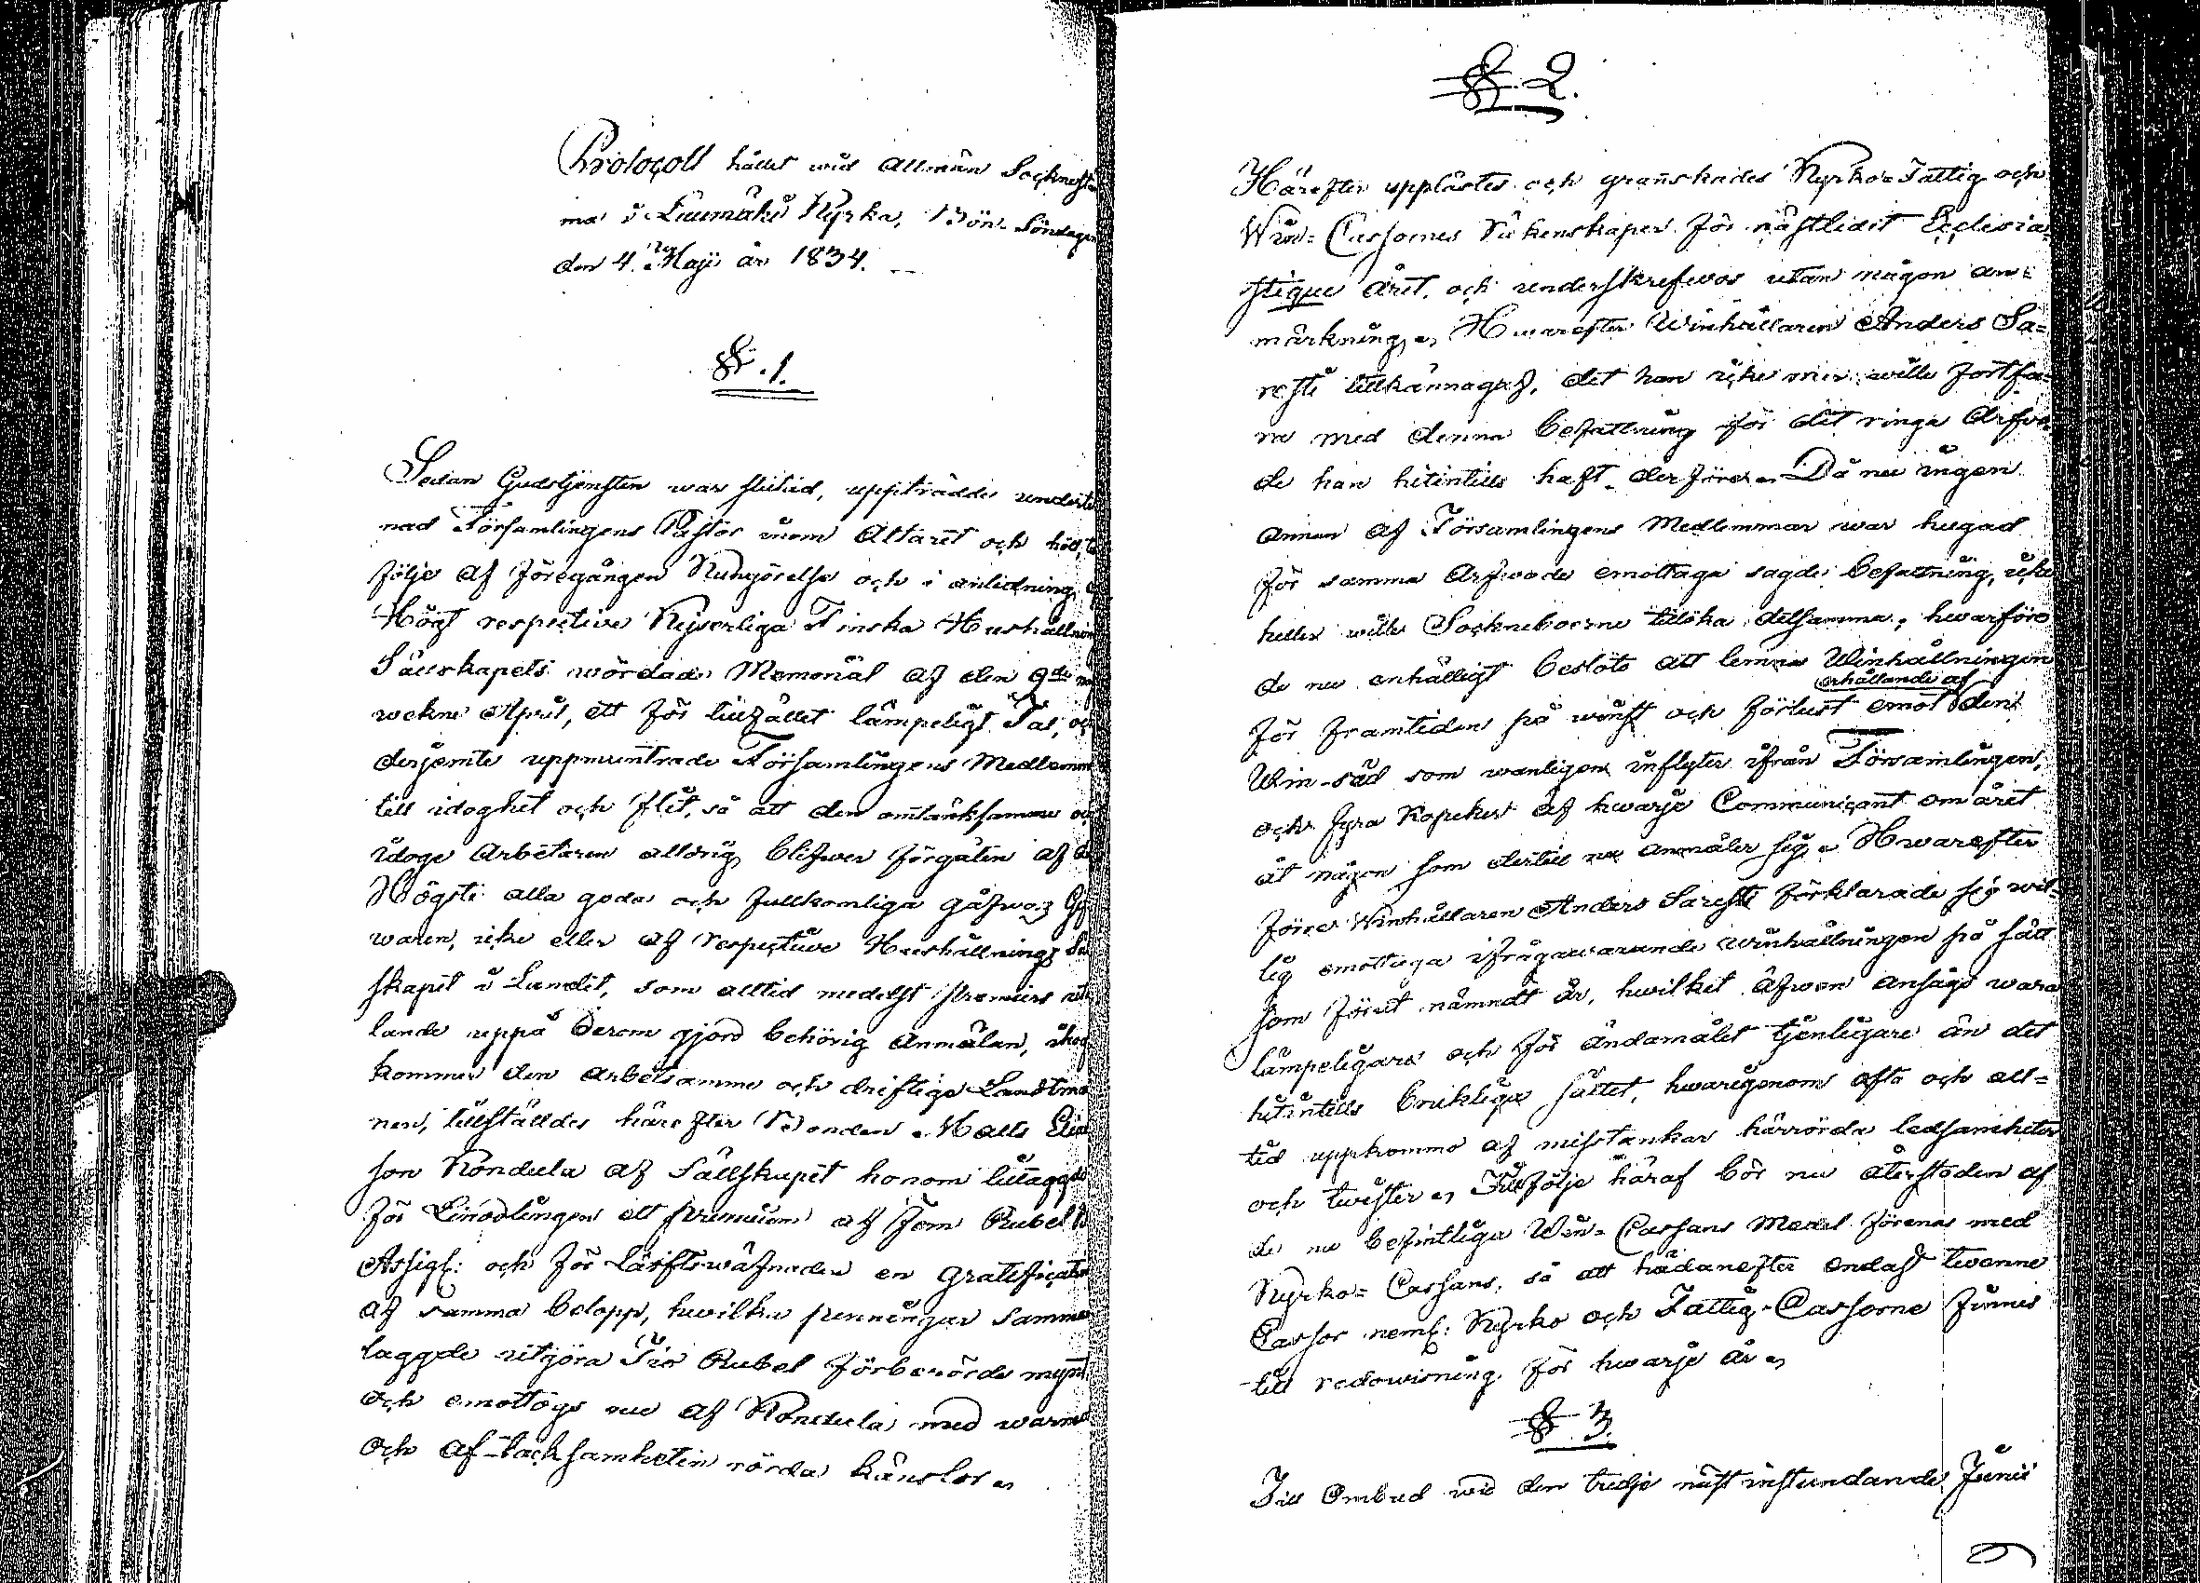 Protocoll hållet wid allmän Socknestä
ma i Luumäki Kyrka, Bön-Söndagen
den 4. Maji år 1834.
§. 1.
Sedan Gudstjensten war slutad, uppträdde underteck
nad Församlingens Pastor inom Altaret och höll, till
följe af föregången Kungörelse och i anledning af
Högt respective Kejserliga Finska Hushållnings
Sällskapets wördade Memorial af den 9de näst
wekne April, ett för tillfället lämpeligt Tal, och
derjemte uppmuntrade Församlingens Medlemmar
till idoghet och flit, så att den omtänksamme och
idoge Arbetaren alldrig blifwer förgäten af den
Högste alla goda och fullkomliga gåfwors Gif
waren, icke eller af respective Hushållnings Säll
skapet i Landet, som alltid medelst premiers
lande uppå derom gjord behörig Anmälan, ihog
kommer den arbetsamme och driftige Landtman
nen, tillställdes härefter Bonden Matts
son Köndulu af Sällskapet honom tillagde
för Linodlingen ett premium af Fem Rubel B.
Assign: och för Lärftswäfnaden en gratification
af samma belopp, hwilka penningar samman
laggde utgöra Tio Rubel förberörde mynt,
och emottogs nu af Köndulu med warma
och af tacksamheten rörda känslor
§ 2.
Härefter upplästes och granskades Kyrko- Fattig och
Win- Cassornes Räkenskaper för nästlidet Ecclesia-
stique året, och underskrefwos utan någon an-
märkning. Hwarefter Winhållaren Anders Sa-
resti tillkännagaf, det han icke mer wille fortfa-
ra med denna befattning för det ringa Arfwo-
de han hitintills haft derföre. Då nu ingen
annan af Församlingens Medlemmar war hugad
för samma Arfwode emottaga sagde befattning, icke
heller wille Socknéboerne tillöka detsamma, hwarföre
de nu enhälligt beslöto att lemna Winhållningen
erhållande af
för framtiden på winst och förlust emot den
Win-säd som wanligen inflyter ifrån Församlingen,
och fyra Kopeker af hwarje Communicant om året
åt någon som dertill anmäler sig. Hwarefter
förre Winhållaren Anders Saresti förklarade sig wil-
lig emottaga ifrågawarande winhållningen på sätt
som förut nämndt är, hwilket äfwen ansågs wara
lämpeligare och för ändamålet tjenligare än det
hitintills brukliga sättet, hwarigenom ofta och all-
tid uppkommo af misstankar härrörda ledsamheter
och twister. Till följe häraf bör nu återstoden af
de nu befintliga Win- Cassans Medel förenas med
Kyrko- Cassans, så att hädanefter endast twenne
Cassor neml: Kyrko och Fattig-Cassorne finnes
till redowisning för hwarje år
§ 3.
Till Ombud wid den tredje näst instundande Junii